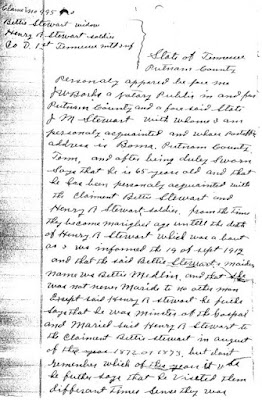 Claim no 995
Bettie Stewart widow
Henry R Stewart soldier
Co D. 1st Tennessee
State of Tennessee
Putnam County
Personaly appered before me
J W Borks a Notary Public in and for
Putnam County and a fore said State
J M Stewart with whome I am
personaly acquainted and whose
address is Boma Putnam County
Tenn, and after being duley Sworn
Says that he is 65 years old and that
he has been personaly acquainted with
the Claiment Bettie Stewart and
Henry R Stewart soldier, from the time
they became age untill the death
of Henry R Stewart which was a bout
as I was informed the 19 of sept 19
and that the said Bettie Stewart maiden
name was Bettie Medlin, and that she
was not never Maried to no other man
Except said Henry R Stewart he further
says that he was minister of the Gospel
and Maried said Henry R Stewart to
the Claiment Bettie Stewart in august
of the year 1872 or 1873, but dont
remember which of the years it was
he further say that he Visited them
different Times Sence they was